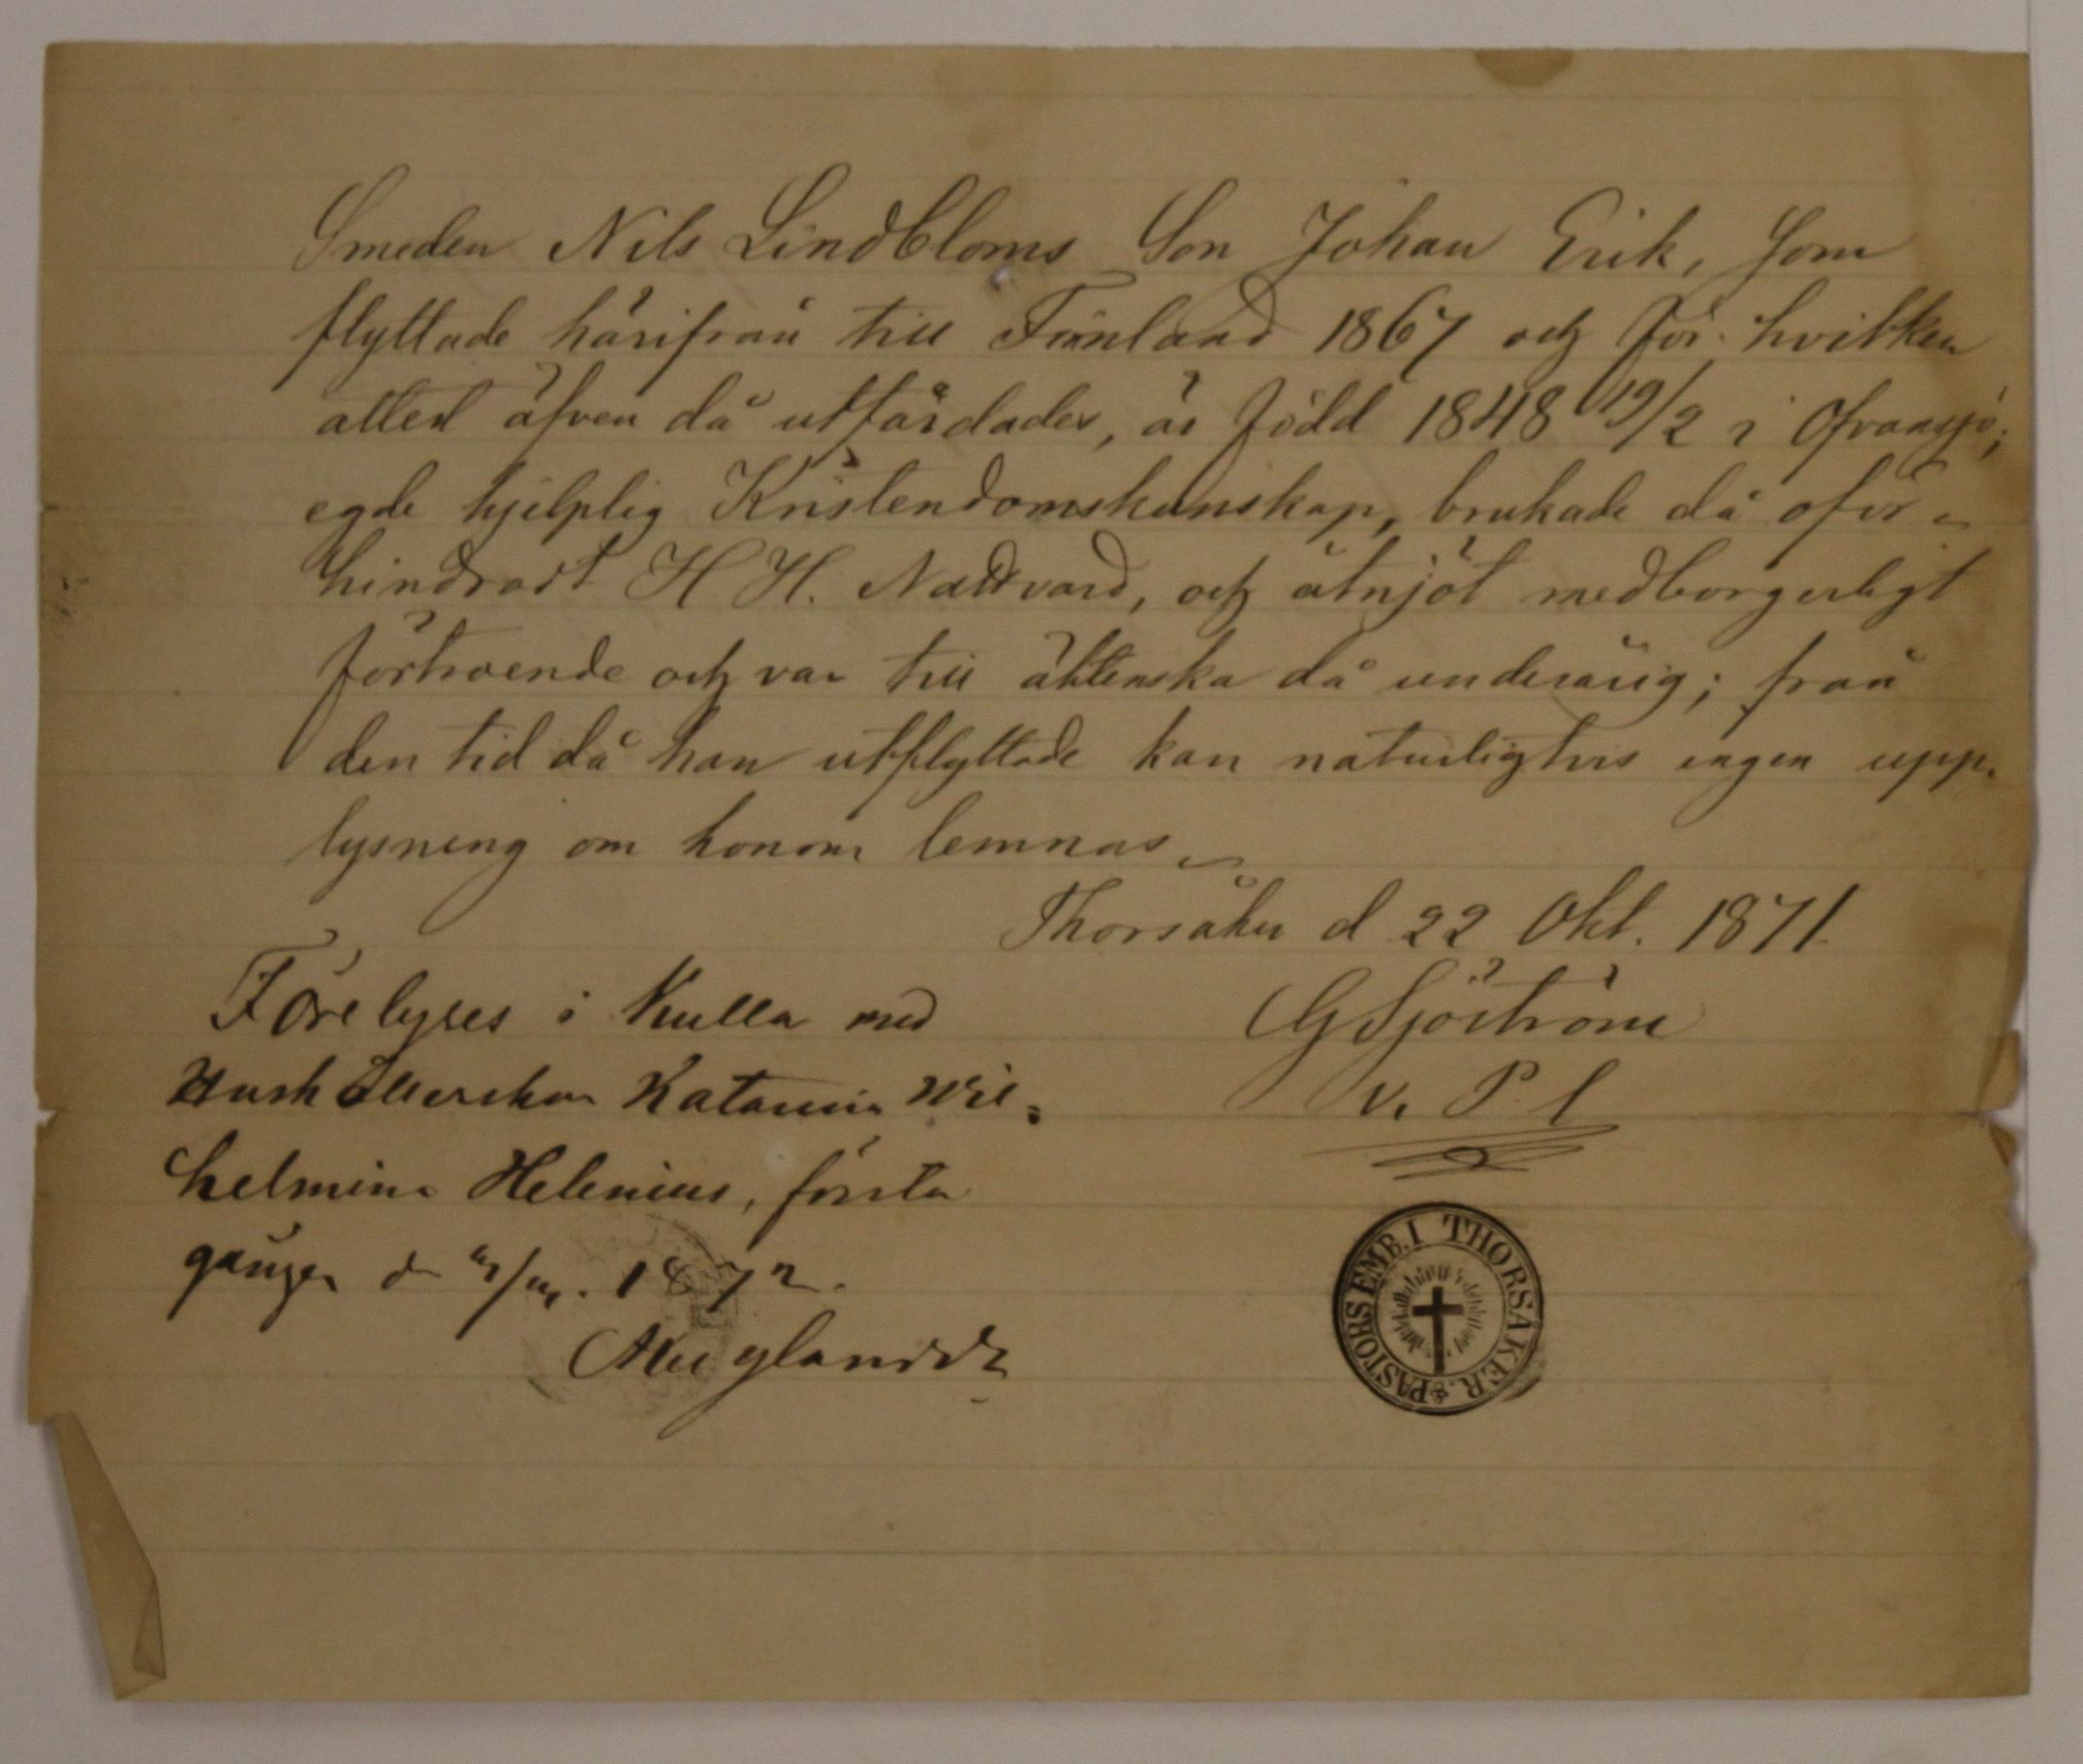 Smeden Nils Lindbloms Son Johan Erik, som
flyttade härifrån till Finland 1867 och för hvilken
attest äfven då utfärdades, är född 1848 19/2 i Ofvansjö;
egde hjelplig Kristendomskunskap, brukade då oför-
hindradt H. H. Nattvard, och åtnjöt medborgerligt
förtroende och var till äktenska då underårig; från
den tid då han utflyttade kan naturligtvis ingen upp-
lysning om honom lemnas.
Thorsåker d 22 Okt. 1871.
G Sjöström
v. P. l
Förelyses i Kulla med
Hushållerskan Katarina Wil-
helmina Helenius, första
gången d 1872.
PASTORSEMB. I THORSÅKER.